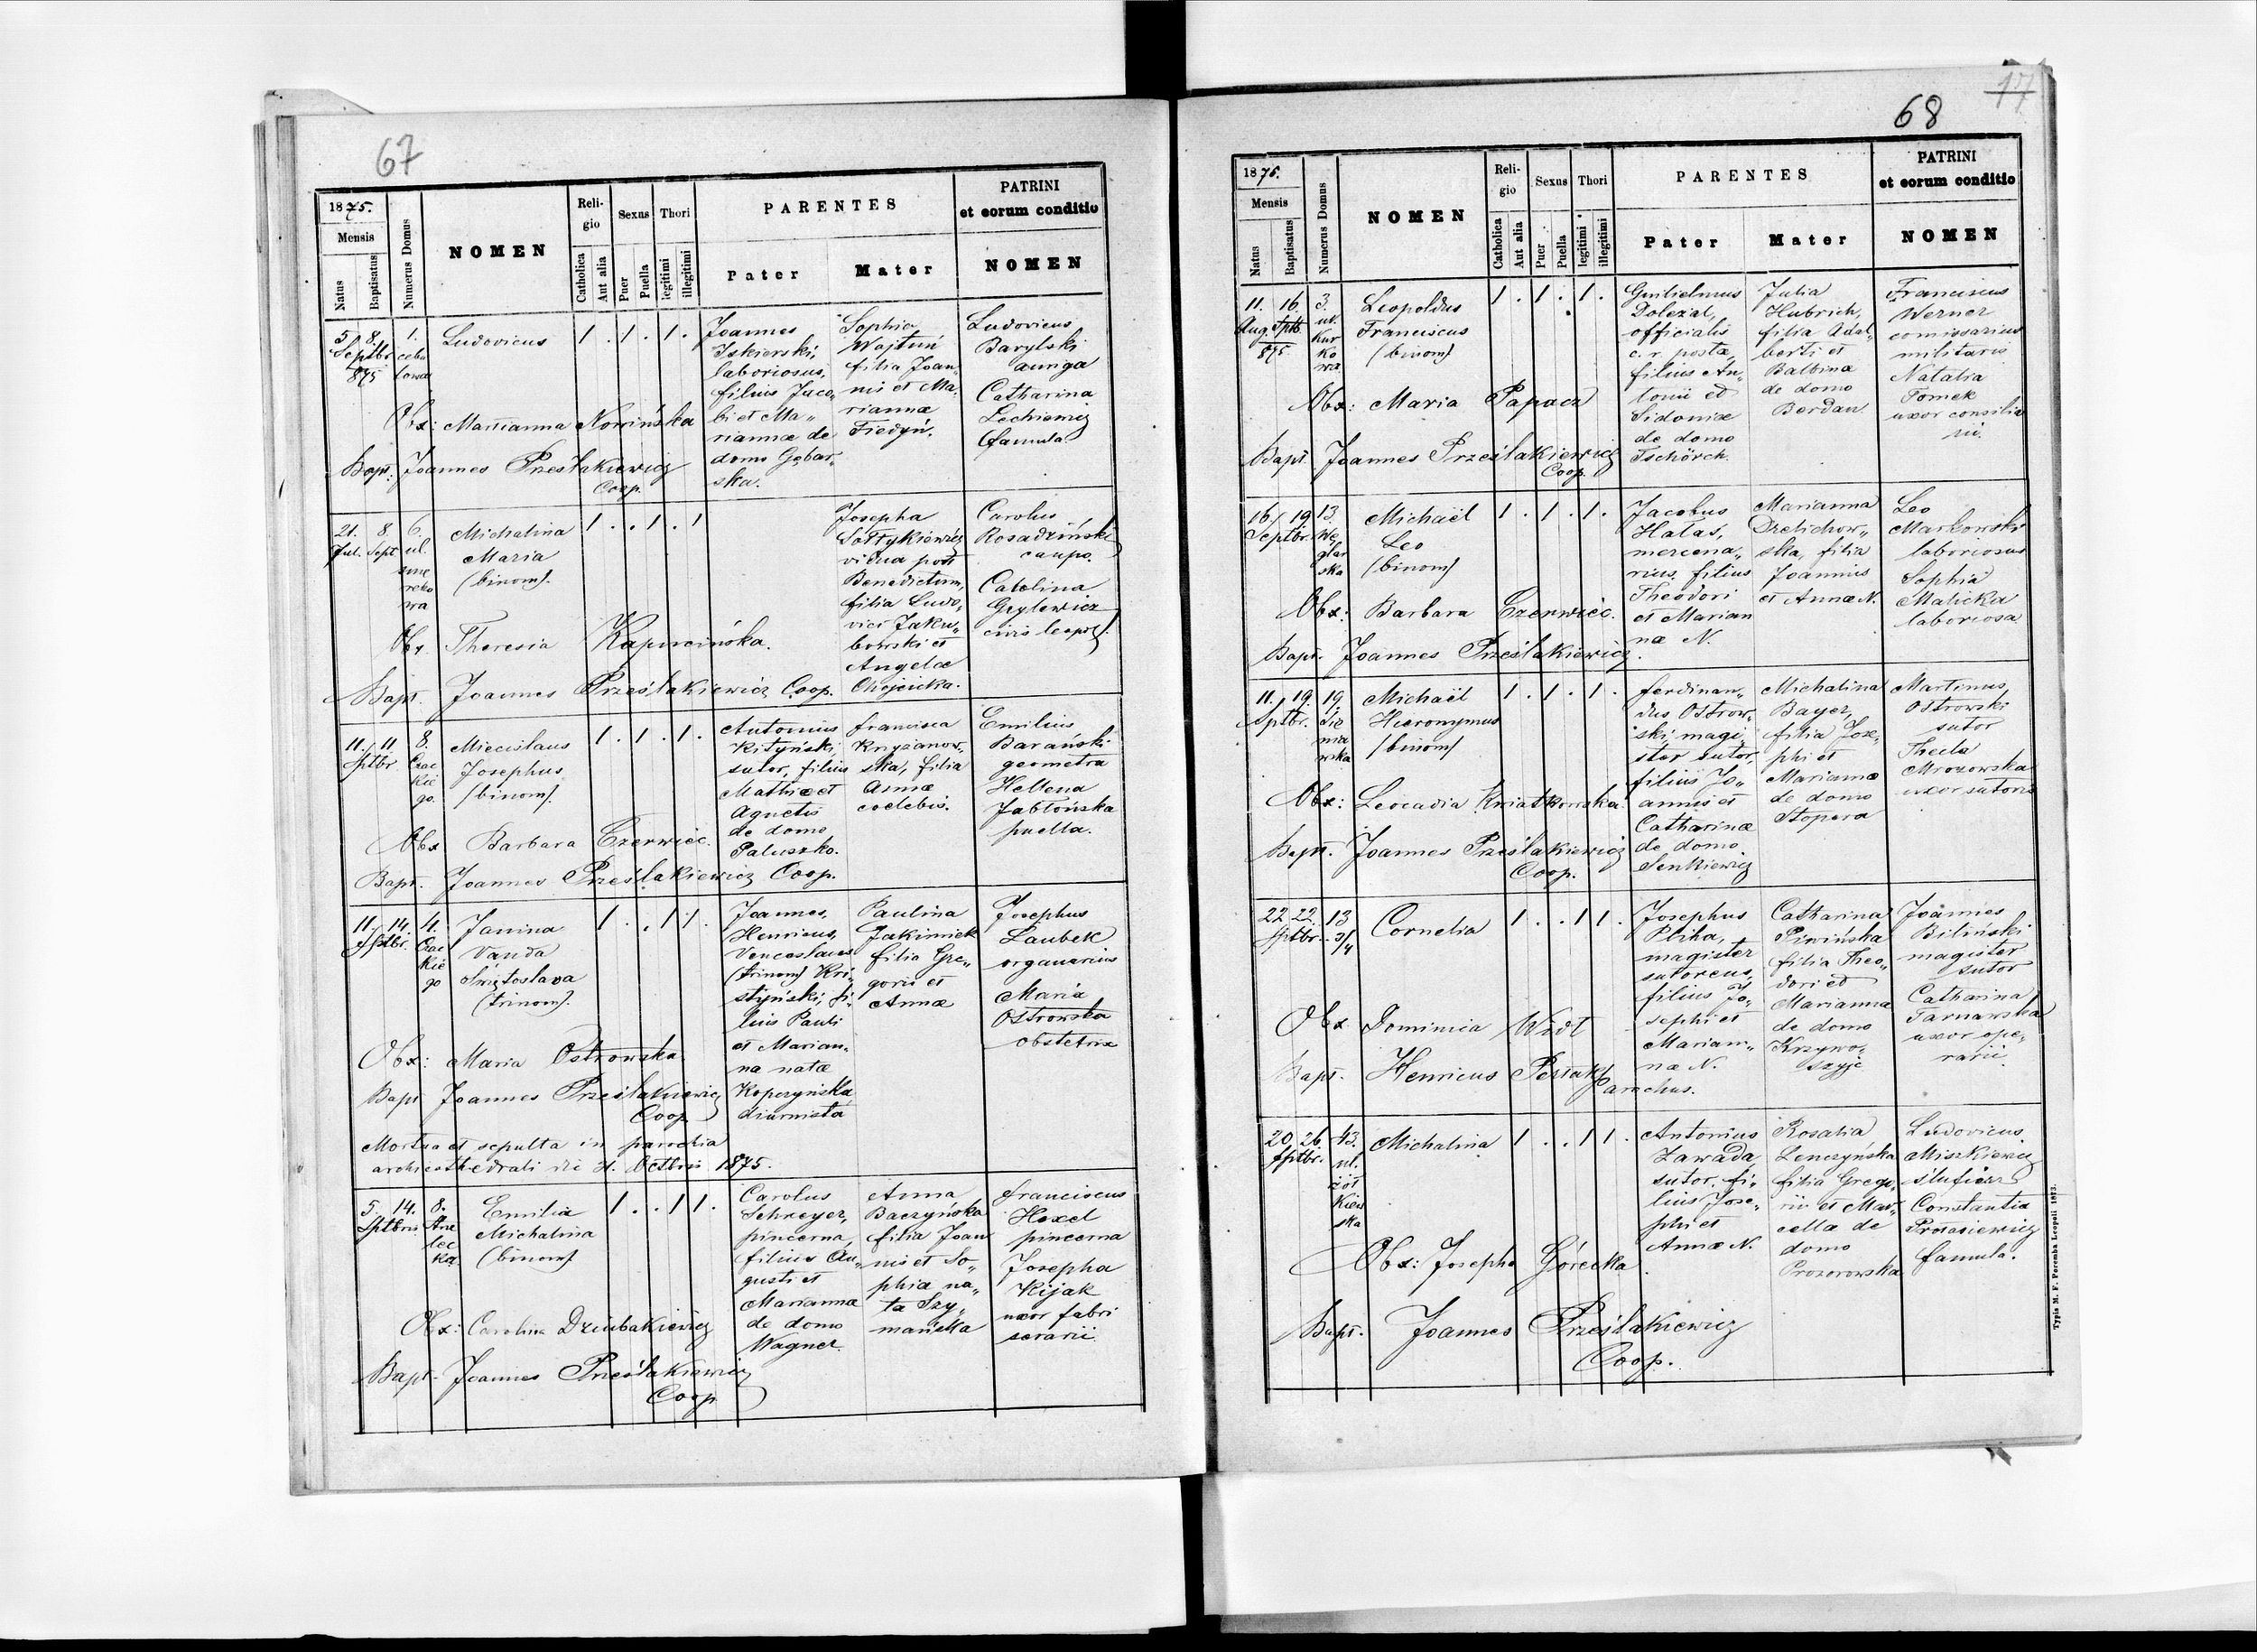 67
1875.
Mensis
Natus
Baptisatus
Numerus Domus
NOMEN
Reli-
gio
Catholica
Aut alia
Sexus
Puer
Puella
Thori
legitimi
illegitimi
PARENTES
Pater
Mater
PATRINI
et eorum conditio
NOMEN
5 8.
Septbr
875
1.
Ludovicus
1 . 1 . 1 .
Joannes
Iskierski,
laboriosus,
filius Jaco„
bi et Ma„
riannæ de
domo Gębar„
ska.
Sophia
Wajtuń
filia Joan„
nis et Ma„
riannæ
Fiedyń.
Ludovicus
Barylski
auriga
Catharina
Lechiewicz
famula
Obx: Marianna Nowińska
Bapt: Joannes Prześlakiewicz
Coop.
21. 8
Jul. Sept
6
ul.
Michalina
Maria
(binom).
1 . . 1 . 1
Josepha
Sołtykiewicz
vidua post
Benedictum,
filia Ludo„
vici Jaku„
bowski et
Angelæ
Chojeicka.
Carolus
Rosadziński
caupo.
Carolina
Grylewicz
civis leopol.
Obx. Theresia Kapucińska.
Bapt. Joannes Prześlakiewicz Coop.
11. 11
Sptbr
8.
Czac
kie
go.
Miecislaus
Josephus
(binom).
1 . 1 . 1 .
Antonius
Kityński,
sutor, filius
Mathiæ et
Agnetis
de domo
Paluszko.
Francisca
Krzyżanow„
ska, filia
Annæ
coelebis.
Emilius
Barański
geometra
Hellena
Jabłońska
puella.
Obx Barbara Czerwiec.
Bapt. Joannes Prześlakiewicz Coop.
11. 14.
Sptbr.
4.
Czac
kie
go
Janina
Vanda
Świętoslava
(trinom).
1 . . 1 1 .
Joannes,
Henricus,
Venceslaus
(trinom) Kri„
styński, fi„
lius Pauli
et Marian„
na natæ
Kopczyńska,
diurnista
Paulina
Jakimiek
filia Gre„
gorii et
Annæ
Josephus
Laubek
organarius
Maria
Ostrowska
obstetrix
Obx: Maria Ostrowska
Bapt Joannes Prześlakiewicz
Coop.
Mortua et sepulta in parochia
archicathedrali die 21. Octbris 1875.
5. 14.
Sptbris
8.
Strze
lec
ka.
Emilia
Michalina
(binom)
1 . . 1 1 .
Carolus
Schreyer,
pincerna,
filius Au„
gusti et
Mariannæ
de domo
Wagner.
Anna
Baczyńska
filia Joan
nis et So„
phia na„
ta Szy„
mańska
Franciscus
Hexel
pincerna
Josepha
Kijak
uxor fabri
serarii
Obx: Carolina Dziubakiewicz
Bapt. Joannes Prześlakiewicz
Coop.
17
68
1875.
Mensis
Natus
Baptisatus
Numerus Domus
NOMEN
Reli-
gio
Catholica
Aut alia
Sexus
Puer
Puella
Thori
legitimi
illegitimi
PARENTES
Pater
Mater
PATRINI
et eorum conditio
NOMEN
11. 16.
Aug. Sptb
875
3.
ul.
Kur
ko
wa
Leopoldus
Franciscus
(binom)
1 . 1 . 1 .
Guilielmus
Doležal,
officialis
c. r. postæ,
filius An„
tonii et
Sidoniæ
de domo
Tschörch.
Julia
Hubrich,
filia Adal„
berti et
Balbinæ
de domo
Berdan.
Franciscus
Werner
comissarius
militaris
Natalia
Tomek
uxor consilia
rii.
Obx: Maria Papacz
Bapt. Joannes Prześlakiewicz
Coop.
16. 19
Septbr.
13
Wę
glar
ska
Michaël
Leo
(binom)
1 . 1 . 1 .
Jacobus
Hałas,
mercena„
rius, filius
Theodori
et Marian
næ N.
Marianna
Dzelichow„
ska, filia
Joannis
et Annæ N.
Leo
Markowski
laboriosus
Sophia
Malicka
laboriosa
Obx: Barbara Czerwiec.
Bapt. Joannes Prześlakiewicz.
11. 19.
Sptbr.
19.
Sie
nia
wska
Michaël
Hieronymus
(binom)
1 . 1 . 1 .
Ferdinan„
dus Ostrow„
ski, magi„
ster sutor,
filius Jo„
annis et
Catharinæ
de domo
Senkiewicz
Michalina
Bayer,
filia Jose„
phi et
Mariannæ
de domo
Stopera
Martinus
Ostrowski
sutor
Thecla
Mrozowska
uxor sutoris
Obx: Leocadia Kwiatkowska
Bapt. Joannes Prześlakiewicz
Coop.
22 22.
Sptbr.
13
3/4
Cornelia
1 . . 1 1 .
Josephus
Pliha,
magister
sutoreus,
filius Jo„
sephi et
Marian„
næ N.
Catharina
Piwińska
filia Theo„
dori et
Marianna
de domo
Krzywo„
szyje
Joannes
Biliński
magister
sutor
Catharina
Tarnawska
uxor ope„
rarii
Obx Dominica Wrót
Bapt. Henricus
Parochus.
20. 26.
Sptbr.
43.
ul.
żół
kiew
ska
Michalina
1 . . 1 1 .
Antonius
Zawada,
sutor, fi„
lius Jose„
phi et
Annæ N.
Rosalia
Lenczyńska
filia Grego„
rii et Mar„
cella de
domo
Prozorowska
Ludovicus
Miszkiewicz
Constantia
Protasiewicz
famula.
Obx: Josepha Górecka
Bapt. Joannes Prześlakiewicz
Coop.
Typis M. F. Poremba Leopoli 1873.